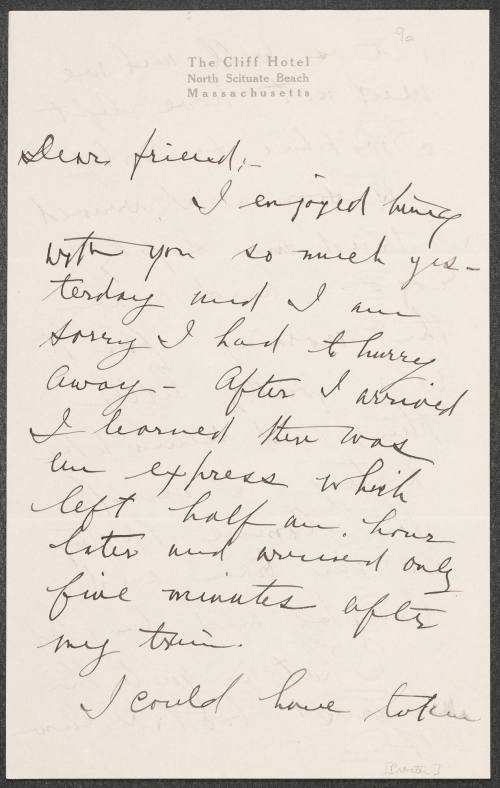 9a
The Cliff Hotel
North Scituate Beach
Massachusetts
Dear friend;—
I enjoyed being
with you so much yes-
terday and I am
sorry I had to hurry
away — After I arrived
I learned there was
an express which
left half an hour
later and arrived only
five minutes after
my train.
I could have taken